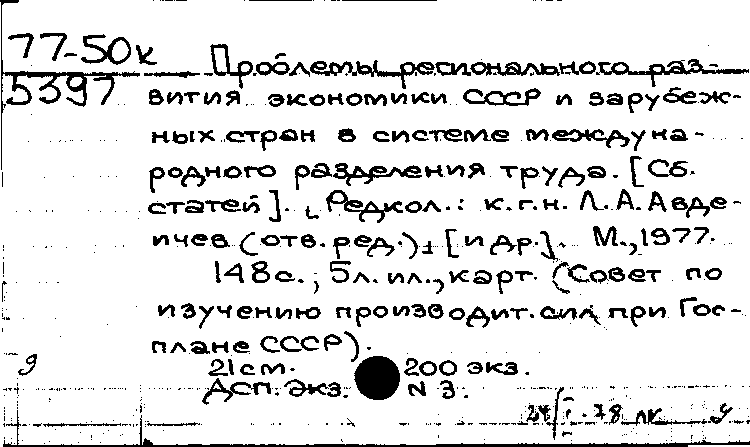 77-50к Проблемы регионального раз-
5397 вития экономики СССР и зарубеж-
ных стран в системе междуна-
родного разделения труда. [Сб.
статей]. Редкол.: к.г.н. Л.А.Авде-
ичев (отв. ред.) [и др.]. М., 1977.
148с.; 5л. ил., карт. (Совет по
изучению производит. сил при Гос-
плане СССР).
21см. 200 экз.
ДСП. Экз. N 3.